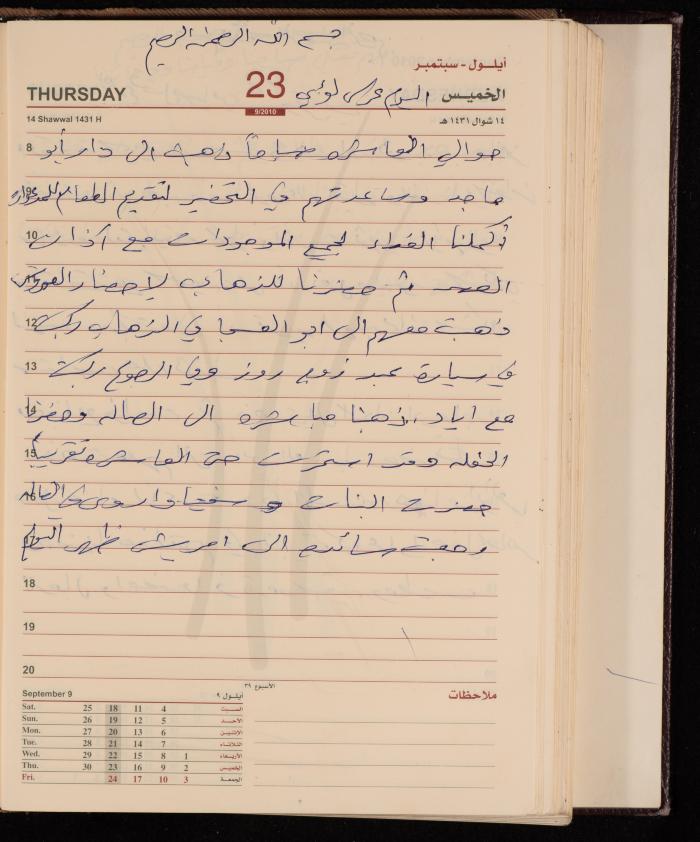 بسم الله الرحمن الرحيم
أيلـول - سبتمبر
THURSDAY 23 اليوم عرس لؤي الخميس
9/2010
14 Shawwal 1431 H ١٤ شوال ١٤٣١ هـ
8 حوالي العاشره صباحاً ذهبت الى دار أبو
ماجد وساعدتهم في التحضير لتقديم الطعام
10 أكملنا الغداء لجميع الموجودات مع آذان
العصر ثم حضرنا للذهاب لإحضار العروس
12 ذهبت معهم الى ابو في الذهاب ركبت
13 في سيارة عبد زوج روز وفي الرجوع ركبت
14 مع اياد، ذهبنا مباشره الى الصاله وحضرنا
15 الحفله وقد استمرت حتى العاشره تقريباً
16 حضرت البنات
17 وصلت سائده الى ظهر اليوم
18
19
20
September 9 أيلـول ٩
الأسبوع ٣٩
ملاحظات
Sat. 25 18 11 4 السبت
Sun. 26 19 12 5 الأحـد
Mon. 27 20 13 6 الإثنين
Tue. 28 21 14 7 الثلاثاء
Wed. 29 22 15 8 1 الأربعاء
Thu. 30 23 16 9 2 الخميس
Fri. 24 17 10 3 الجمعة